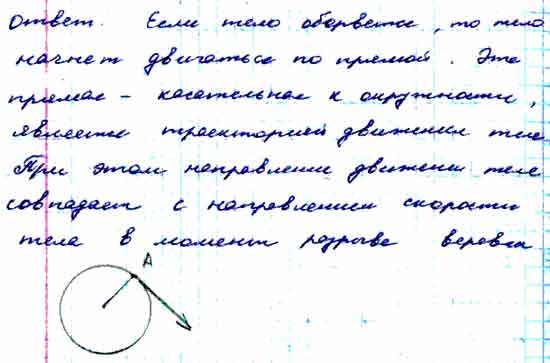 Ответ. Если тело оборвется, то тело
начнет двигаться по прямой. Эта
прямая - касательная к окружности,
является траекторией движения тела
При этом направление движения тела
совпадает с направлением скорости
тела в момент разрыва веревки
А